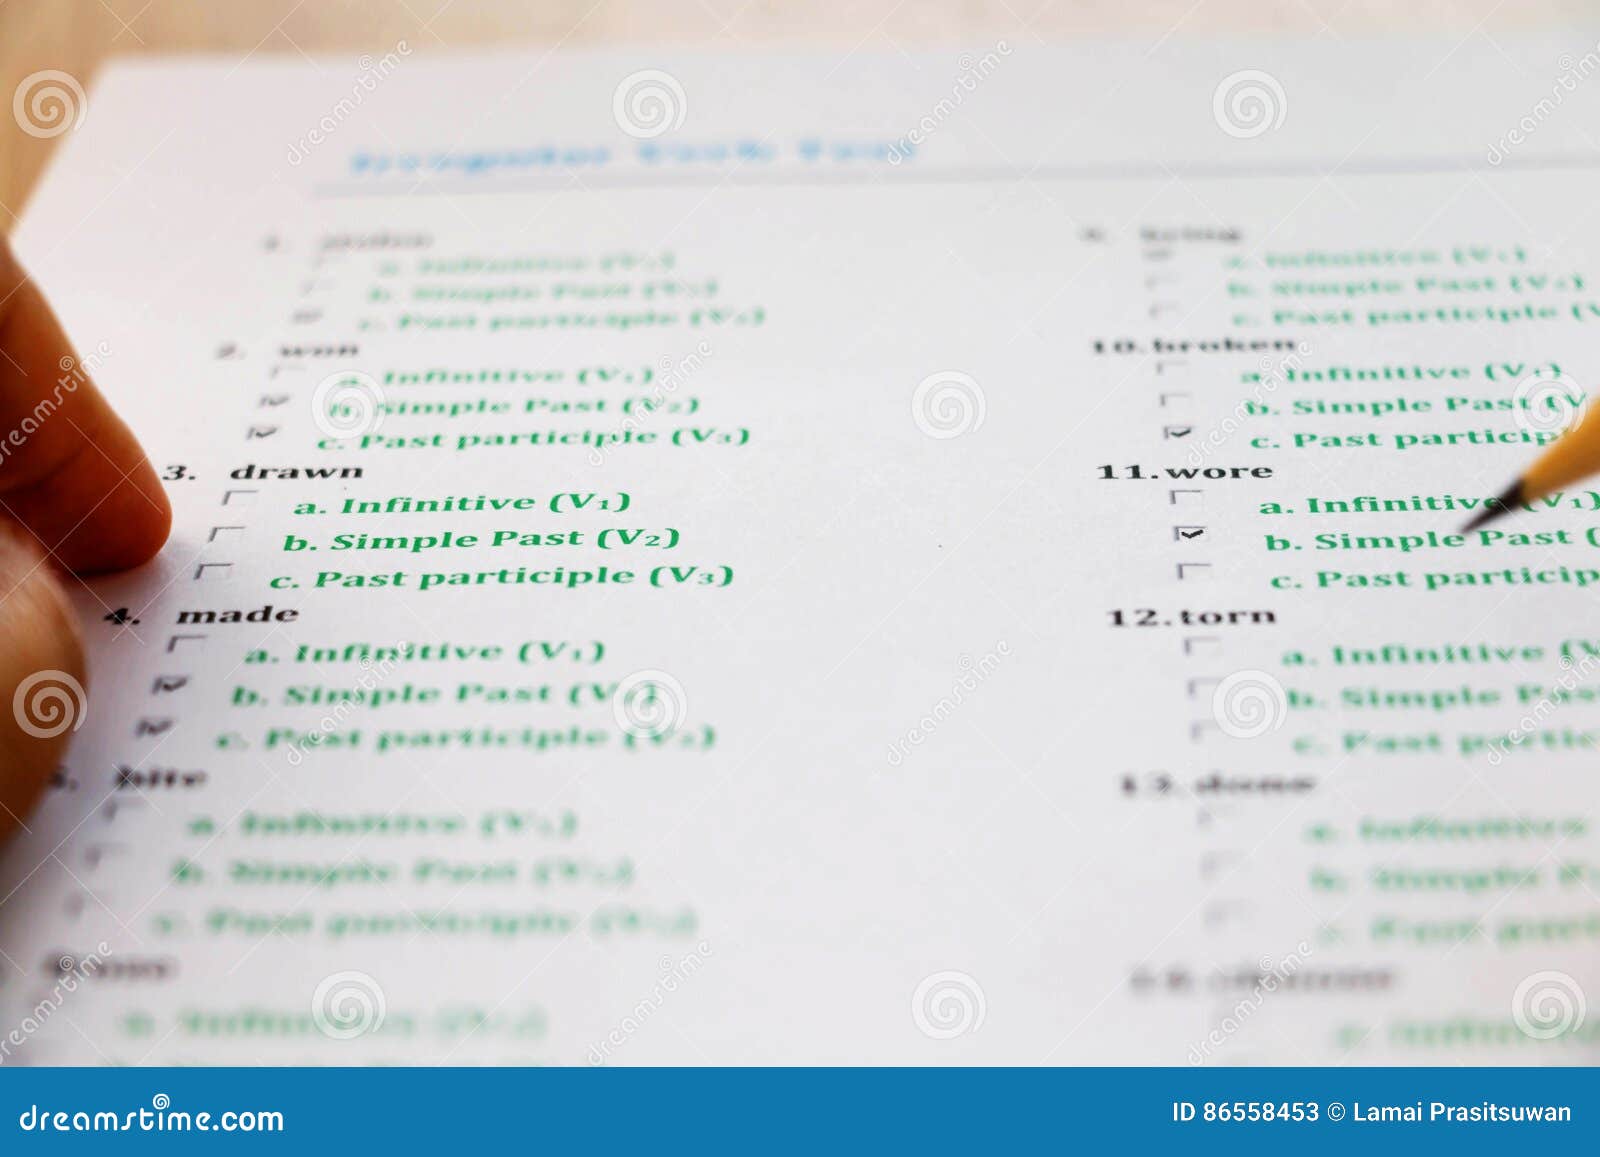 Irregular Verb Test
a. Infinitive (V1)
b. Simple Past (V2)
c. Past participle (V3)
2. won
a. Infinitive (V1)
b. Simple Past (V2)
c. Past participle (V3)
3. drawn
a. Infinitive (V1)
b. Simple Past (V2)
c. Past participle (V3)
4. made
a. Infinitive (V1)
b. Simple Past (V2)
c. Past participle (V3)
5. bite
a. Infinitive (V1)
b. Simple Past (V2)
c. Past participle (V3)
a. Infinitive (V1)
9. bring
a. Infinitive (V1)
b. Simple Past (V2)
c. Past participle (V
10. broken
a. Infinitive (V1)
b. Simple Past (V
c. Past particip
11. wore
a. Infinitive (V1)
b. Simple Past (
c. Past particip
12. torn
a. Infinitive (V
b. Simple Pas
c. Past partic
13. done
a. Infinitive
b. Simple P
c. Past part
14.
a. Infinit
dreamstime.com
ID 86558453 © Lamai Prasitsuwan